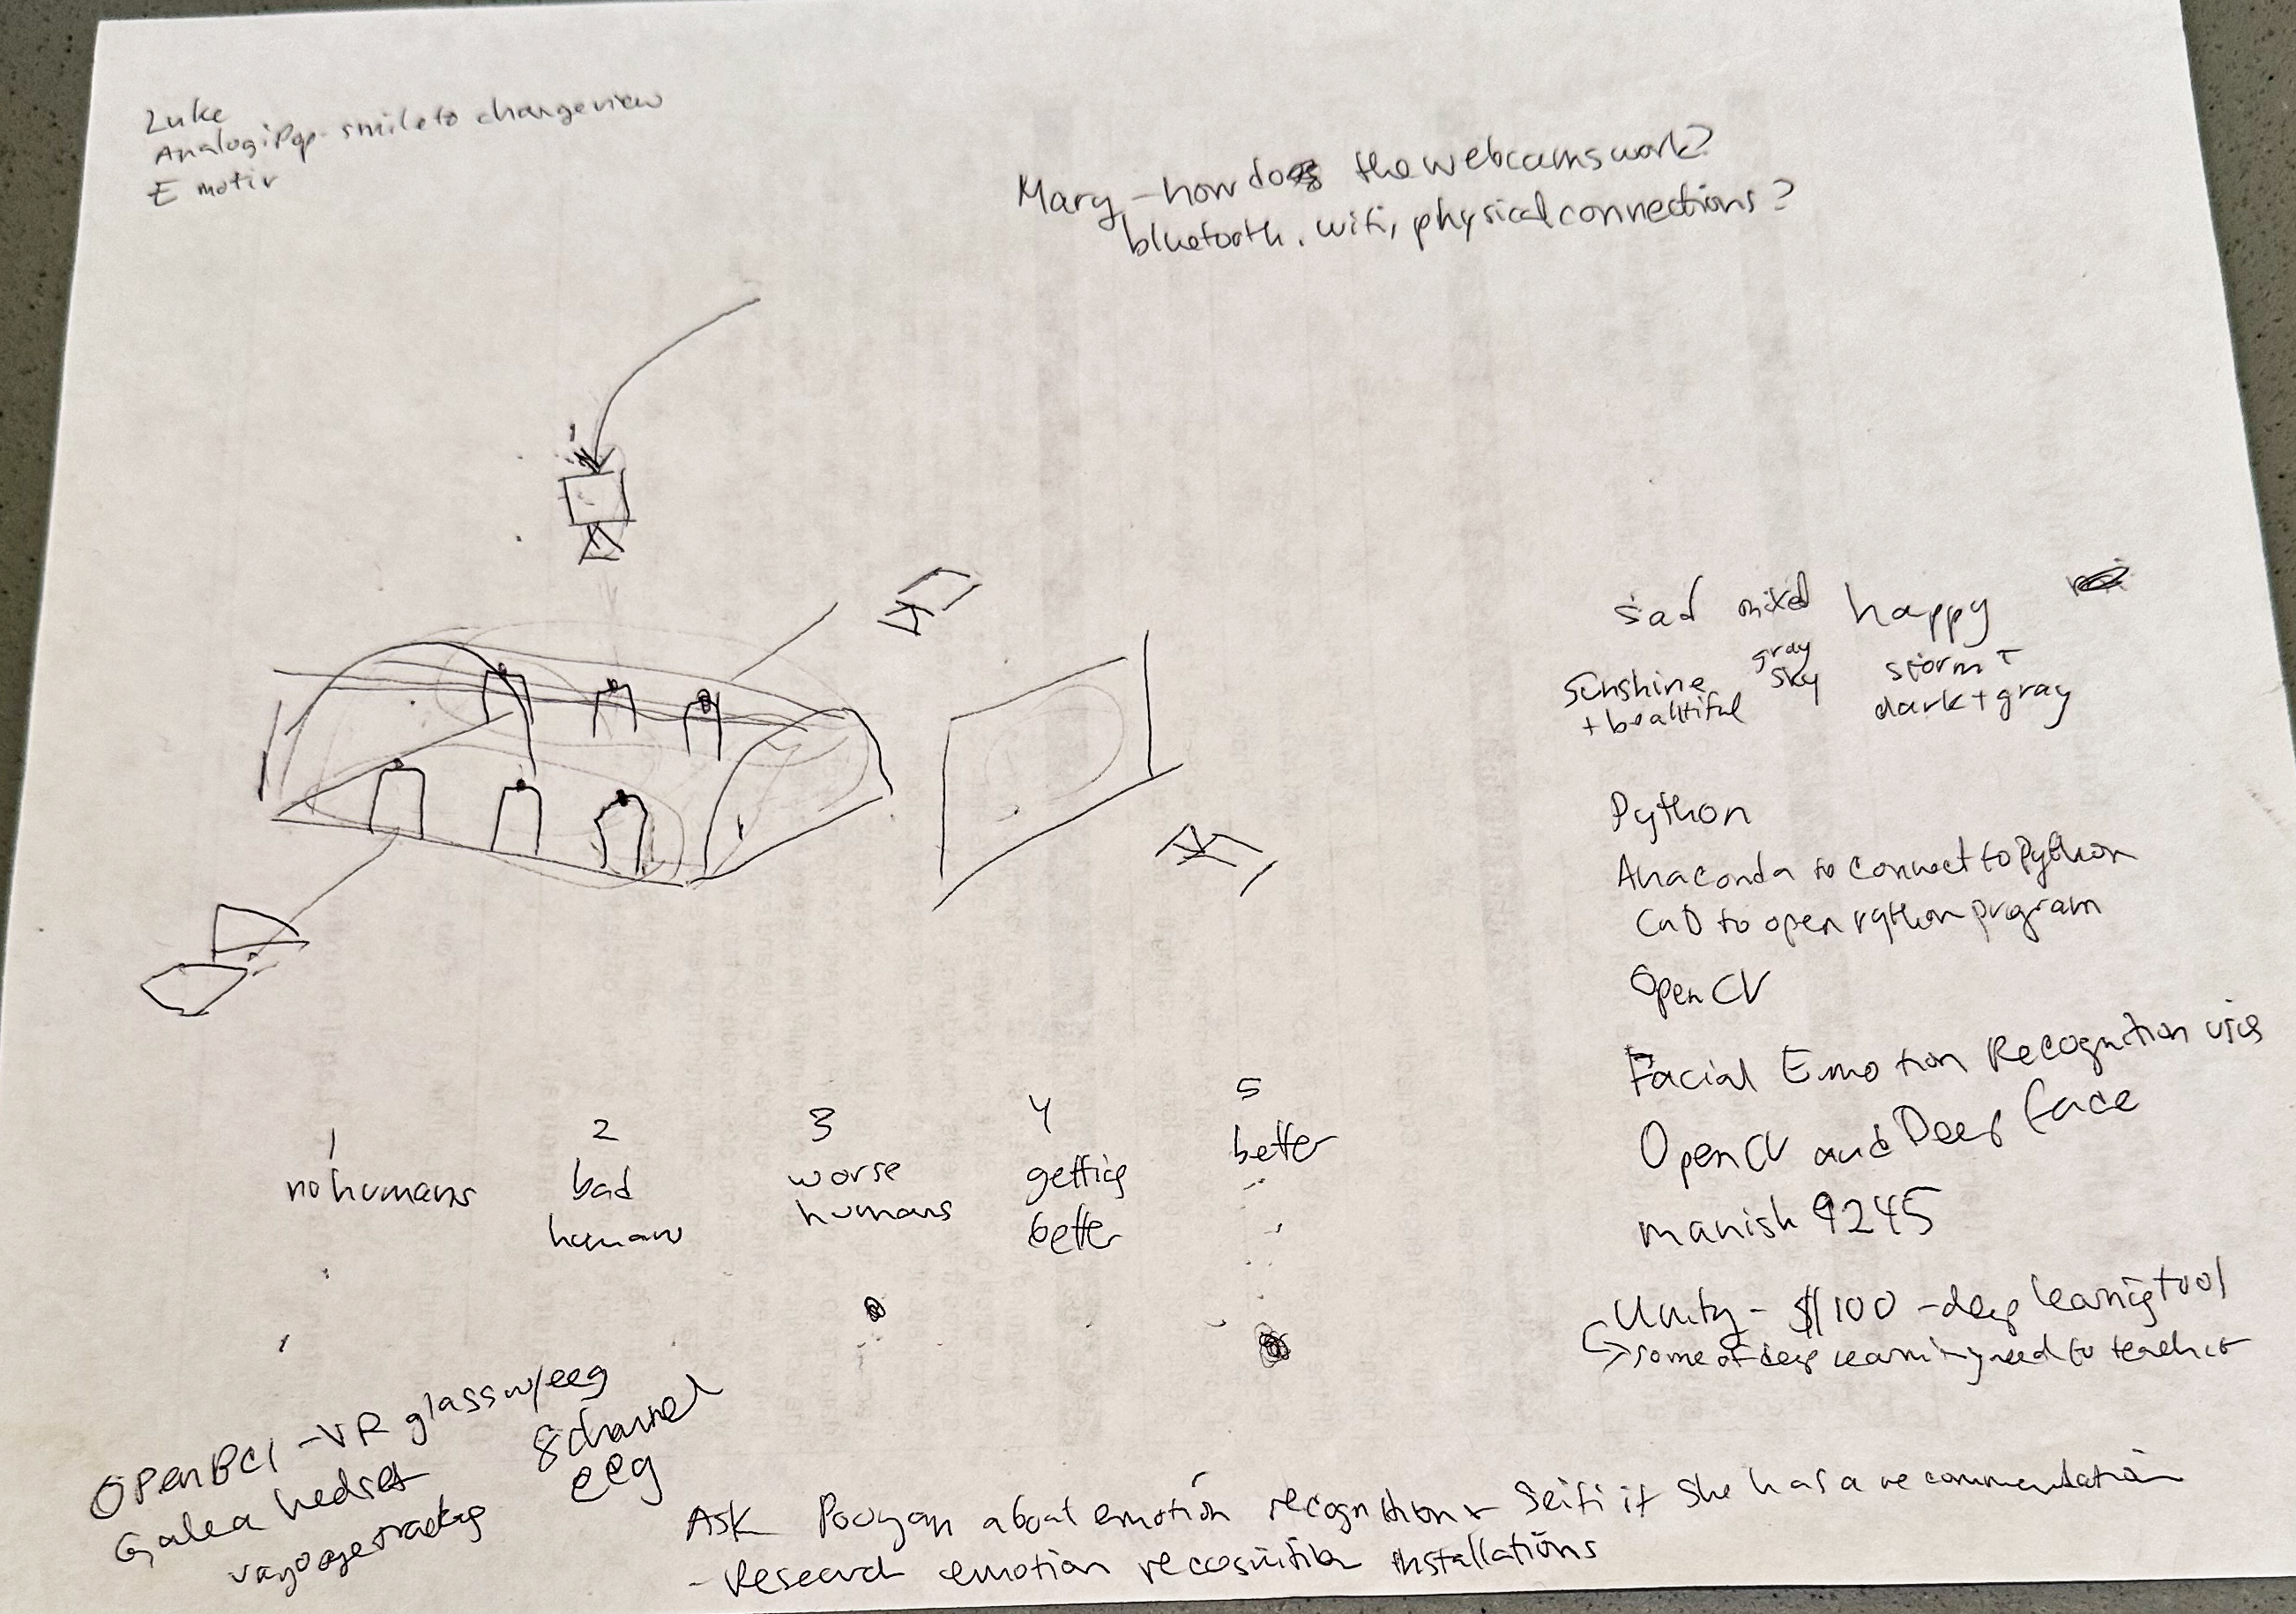 Luke
Analogi smile to change view
Emotiv
Mary - how does the webcams work?
bluetooth, wifi, physical connections?
sad mixed happy
sunshine + beautiful
gray sky
storm + dark + gray
Python
Anaconda to connect to Python
to open python program
OpenCV
Facial Emotion Recognition uses
OpenCV and Deep face
manish 9245
Unity - $100 - deep learning tool
some of deep learning need to teach it
1
no humans
2
bad
humans
3
worse
humans
4
getting
better
5
better
OpenBCI - VR glass w/eeg
Galea hedset
8 channel
eeg
Ask Pooyan about emotion recognition + Seifi if she has a recommendation
- Research emotion recognition installations